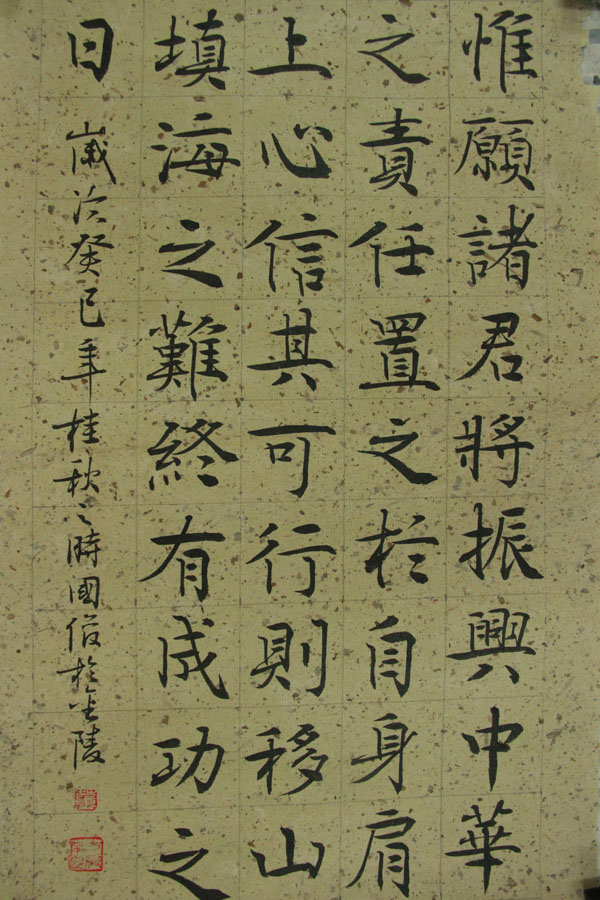 惟願諸君將振興中華
之責任置之於自身肩
上心信其可行則移山
填海之難終有成功之
日
歲次癸巳年桂秋之時國俊於金陵